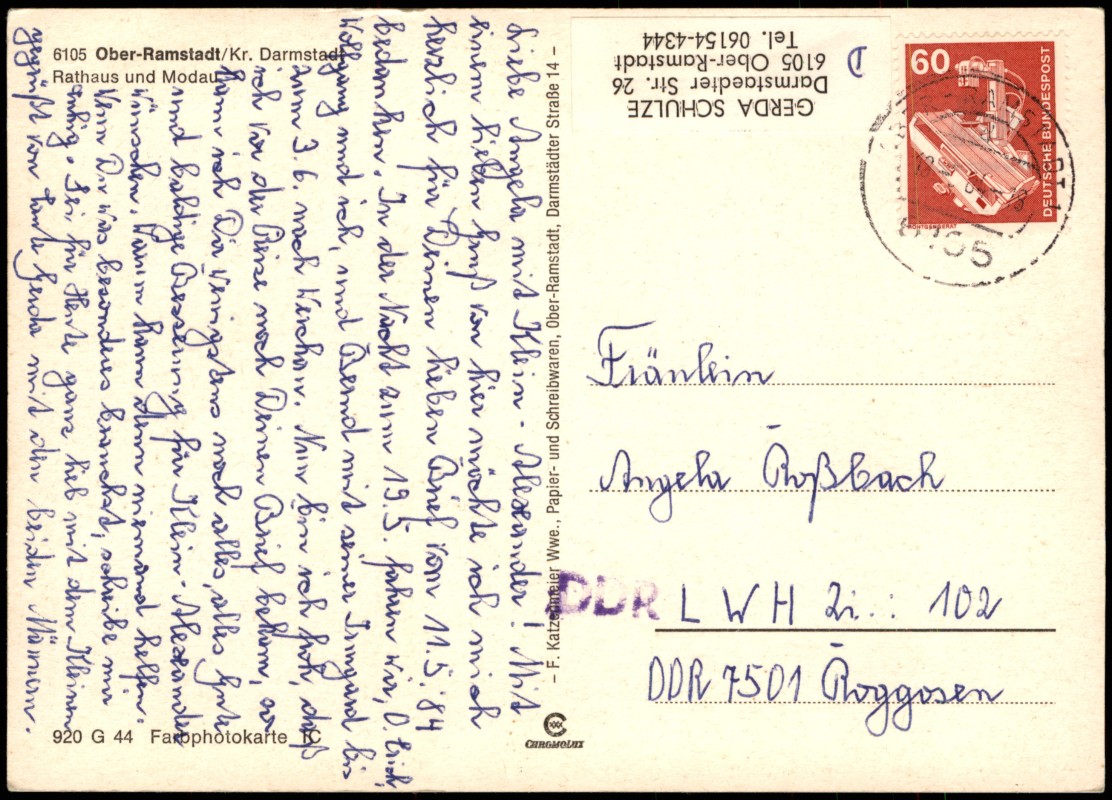 6105 Ober-Ramstadt/Kr. Darmstadt
Rathaus und Modau
Liebe Angela mit Klein-Alexander! Mit
einem lieben Gruß von hier möchte ich mich
herzlich für Deinen lieben Brief vom 11.5.84
bedanken. In der Nacht zum 19.5. fahren wir, O. Erich,
Wolfgang und ich, und Bernd mit seiner Irmgard bis
zum 3.6. nach Kärchau. Nun bin ich froh, daß
ich vor der Reise noch Deinen Brief bekam, so
kann ich Dir wenigstens noch alles, alles Gute
und baldige Besserung für Klein-Alexander
wünschen. Warum kann denn niemand helfen.
Wenn Du was besonderes brauchst, schreibe mir
ruhig. Sei für Heute ganz lieb mit dem Kleinen
gegrüßt von Tante Gerda mit den beiden Männern.
920 G 44 Farbphotokarte IC
– F. Katzenmeier Wwe., Papier- und Schreibwaren, Ober-Ramstadt, Darmstädter Straße 14 –
CHROMOLUX
GERDA SCHULZE
Darmstaedter Str. 26
6105 Ober-Ramstadt
Tel. 06154-4344
D
60
DEUTSCHE BUNDESPOST
RÖNTGENGERÄT
OBER-RAMSTADT 1
6105
Fräulein
Angela Roßbach
DDR
LWH Zi.: 102
DDR 7501 Roggosen